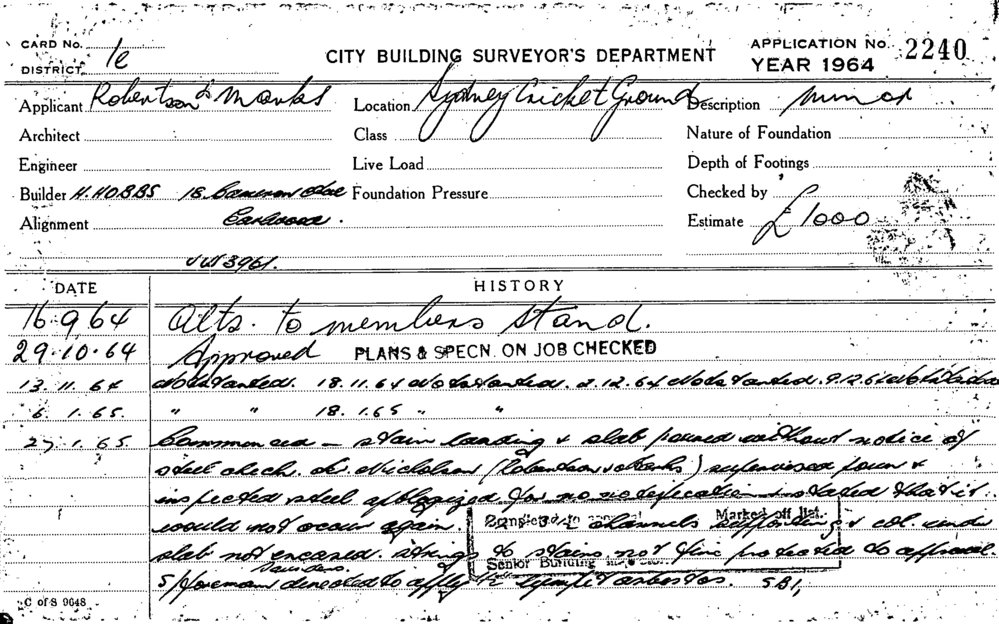 CARD No.
DISTRICT 1e
CITY BUILDING SURVEYOR'S DEPARTMENT
APPLICATION No. 2240
YEAR 1964
Applicant Robertson & Marks
Location Sydney Cricket Ground
Description minor
Architect
Class
Nature of Foundation
Engineer
Live Load
Depth of Footings
Builder H. HOBBS 18. Cameron
Foundation Pressure
Checked by
Alignment Earlwood.
Estimate £1000
3961.
DATE
HISTORY
16.9.64 Alts. to members stand.
29.10.64 Approved PLANS & SPECN. ON JOB CHECKED
13.11.64 Not started. 18.11.64 Not started. 2.12.64 Not started. 9.12.64 Not started
6.1.65. " " 18.1.65 " "
27.1.65. Commenced – stair landing & slab poured without notice of
steel check. Mr. Nicholson (Robertson & Marks) supervised pour &
inspected steel apologized for no notification & stated that it
would not occur again. channels supporting & col. under
slab not encased. strings to stairs not fire protected to approval.
Saunders.
S/foreman directed to apply asbestos. SB1,
Completed to approval Marked off list.
Senior Building Inspector
C of S 9648